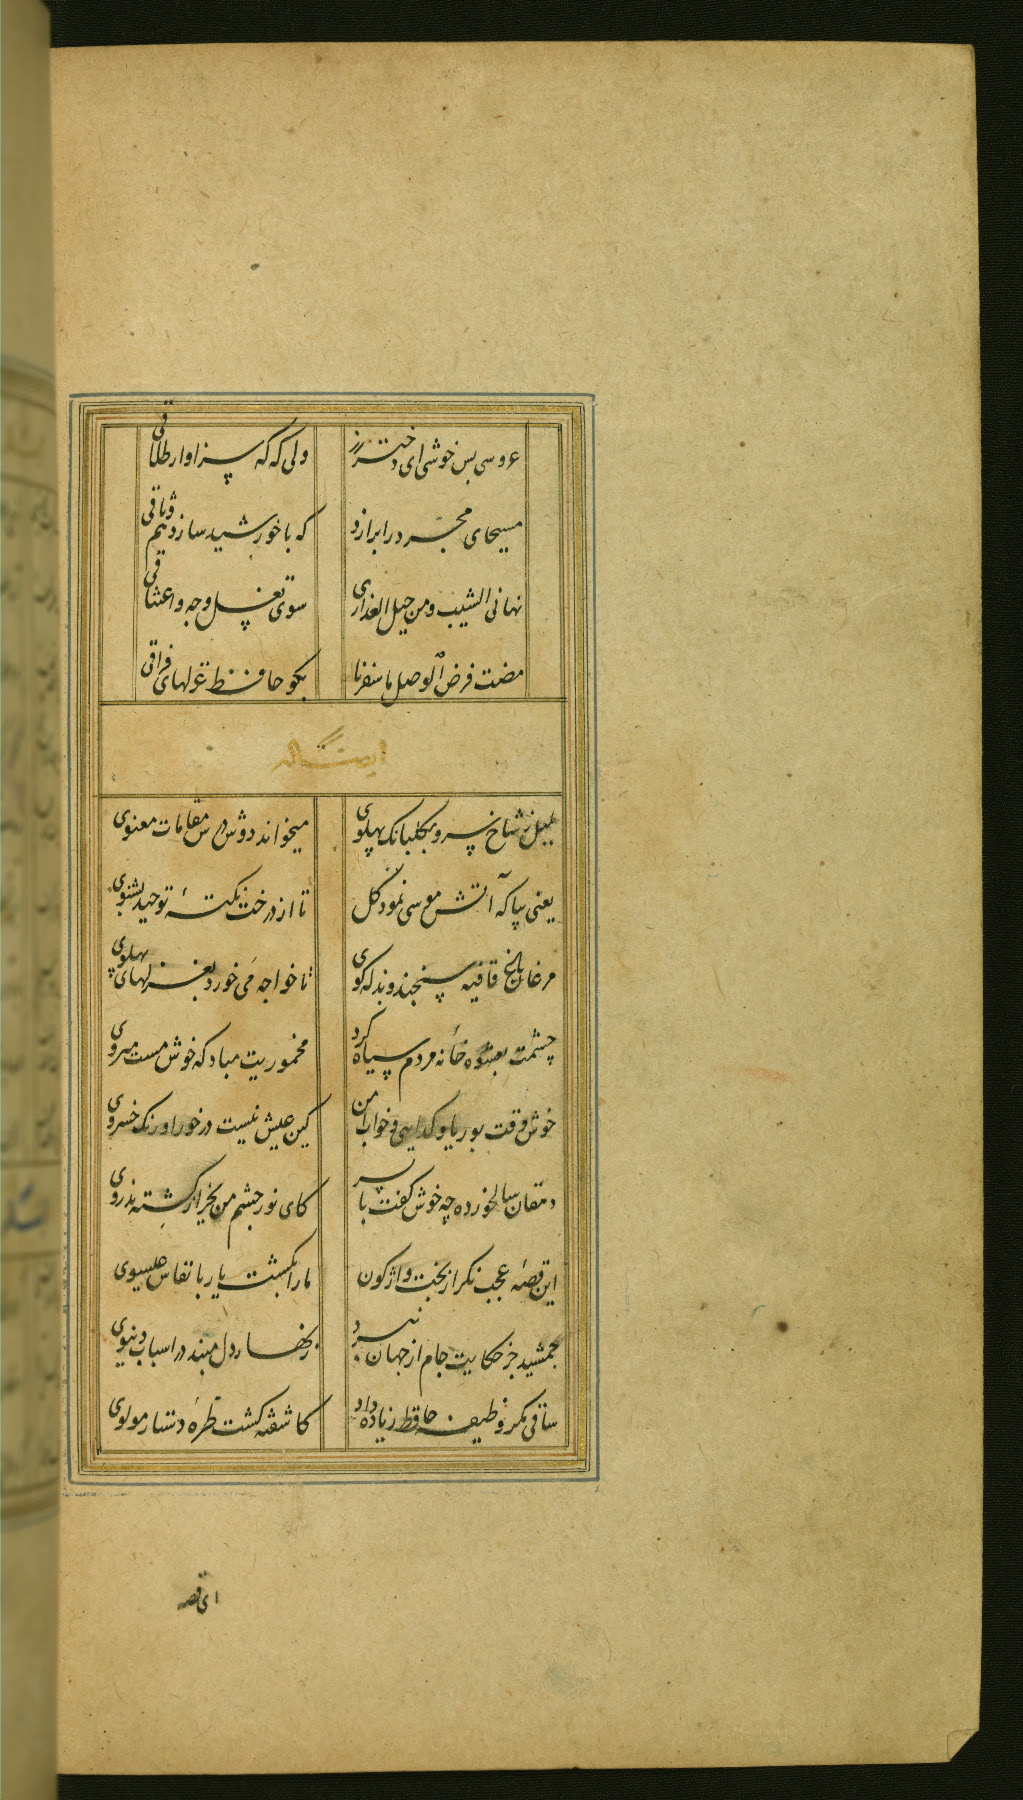 عروسی بس خوشی ای دختر رز ولی که که سزاوار طلاقی
مسیحای مجرد را برازد که با خورشید سازد هم وثاقی
نهانی الشیب و من حیل العذاری سوی تقبیل وجه و اعتناقی
مضت فرض الوصل ما شعرنا بکو حافظ غزلهای فراقی
بلبل ز شاخ سرو بکلبانک پهلوی میخواند دوش درس مقامات معنوی
یعنی بیا که آتش موسی نمود کل تا از درخت نکتهٔ توحید بشنوی
مرغان باغ قافیه سنجند و بذله کوی تا خواجه می خورد بغزلهای پهلوی
چشمت بعشوه خانه مردم سیاه کرد مخموریت مباد که خوش مست میروی
خوش وقت بوریا و کدایی و خواب امن کین عیش نیست درخور اورنک خسروی
دهقان سالخورده چه خوش کفت با پسر کای نور چشم من بجز از کشته ندروی
این قصهٔ عجب نکر از بخت واژکون ما را بکشت یار بانفاس عیسوی
جمشید جز حکایت جام از جهان نبرد زنهار دل مبند در اسباب دنیوی
ساقی مکر وظیفه حافظ زیاده داد کاشفته کشت طرهٔ دستار مولوی